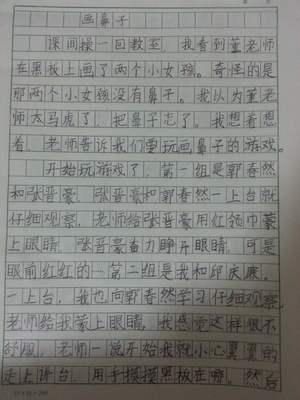 画鼻子
课间操一回教室，我看到董老师
在黑板上画了两个小女孩。奇怪的是
那两个小女孩没有鼻子。我以为董老
师太马虎了，把鼻子忘了。我想着想
着，老师告诉我们要玩画鼻子的游戏。
开始玩游戏了，第一组是郭春然
和张晋豪，张晋豪和郭春然一上台就
仔细观察，老师给张晋豪用红领巾蒙
上眼睛，张晋豪奋力睁开眼睛，可是
眼前红红的…第二组是我和邱庆康。
一上台，我也向郭春然学习仔细观察，
老师给我蒙上眼睛，我感觉这样很不
舒服，老师一说开始我就小心翼翼的
走上讲台，用手摸摸黑板在哪。然后